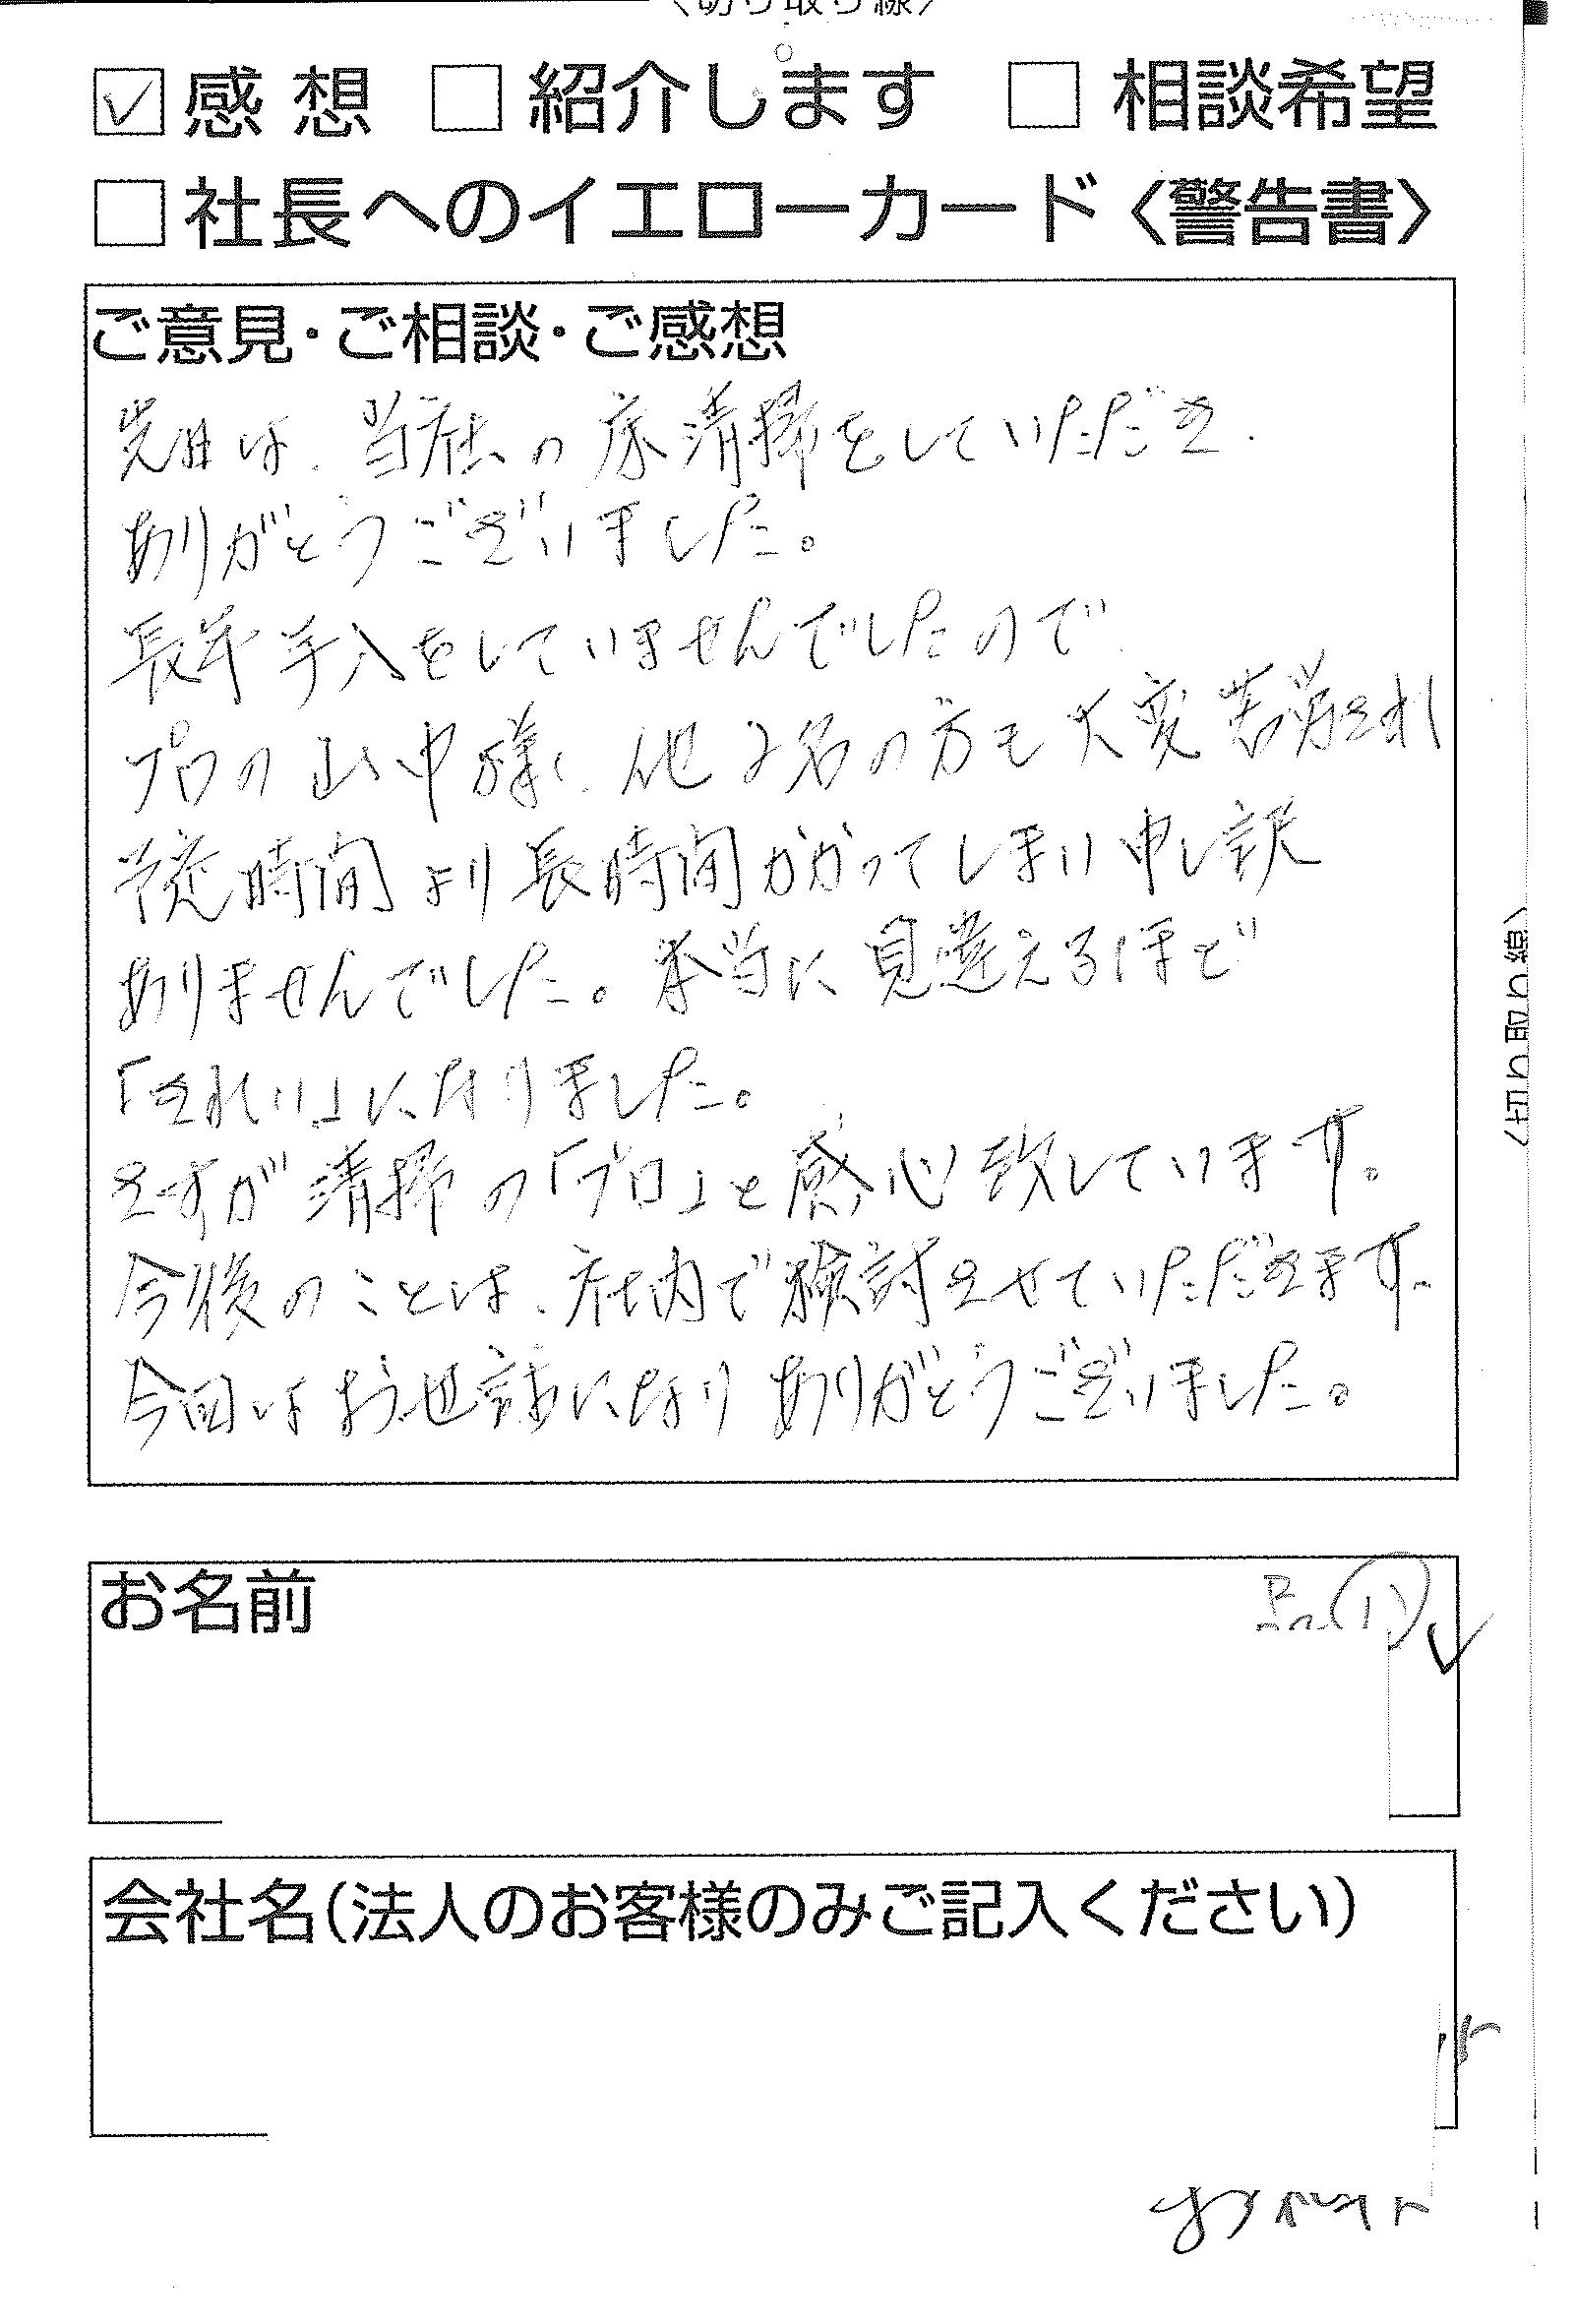 〈切り取り線〉
☑ 感想 □ 紹介します □ 相談希望
□ 社長へのイエローカード〈警告書〉
ご意見・ご相談・ご感想
先日は、当社の床清掃をしていただき、
ありがとうございました。
長年手入をしていませんでしたので
プロの山中様、他2名の方も大変苦労され
予定時間より長時間かかってしまい申し訳
ありませんでした。本当に見違えるほど
「きれい」になりました。
さすが清掃の「プロ」と感心致しています。
今後のことは、社内で検討させていただきます。
今回はお世話になりありがとうございました。
〈切り取り線〉
お名前
会社名(法人のお客様のみご記入ください)